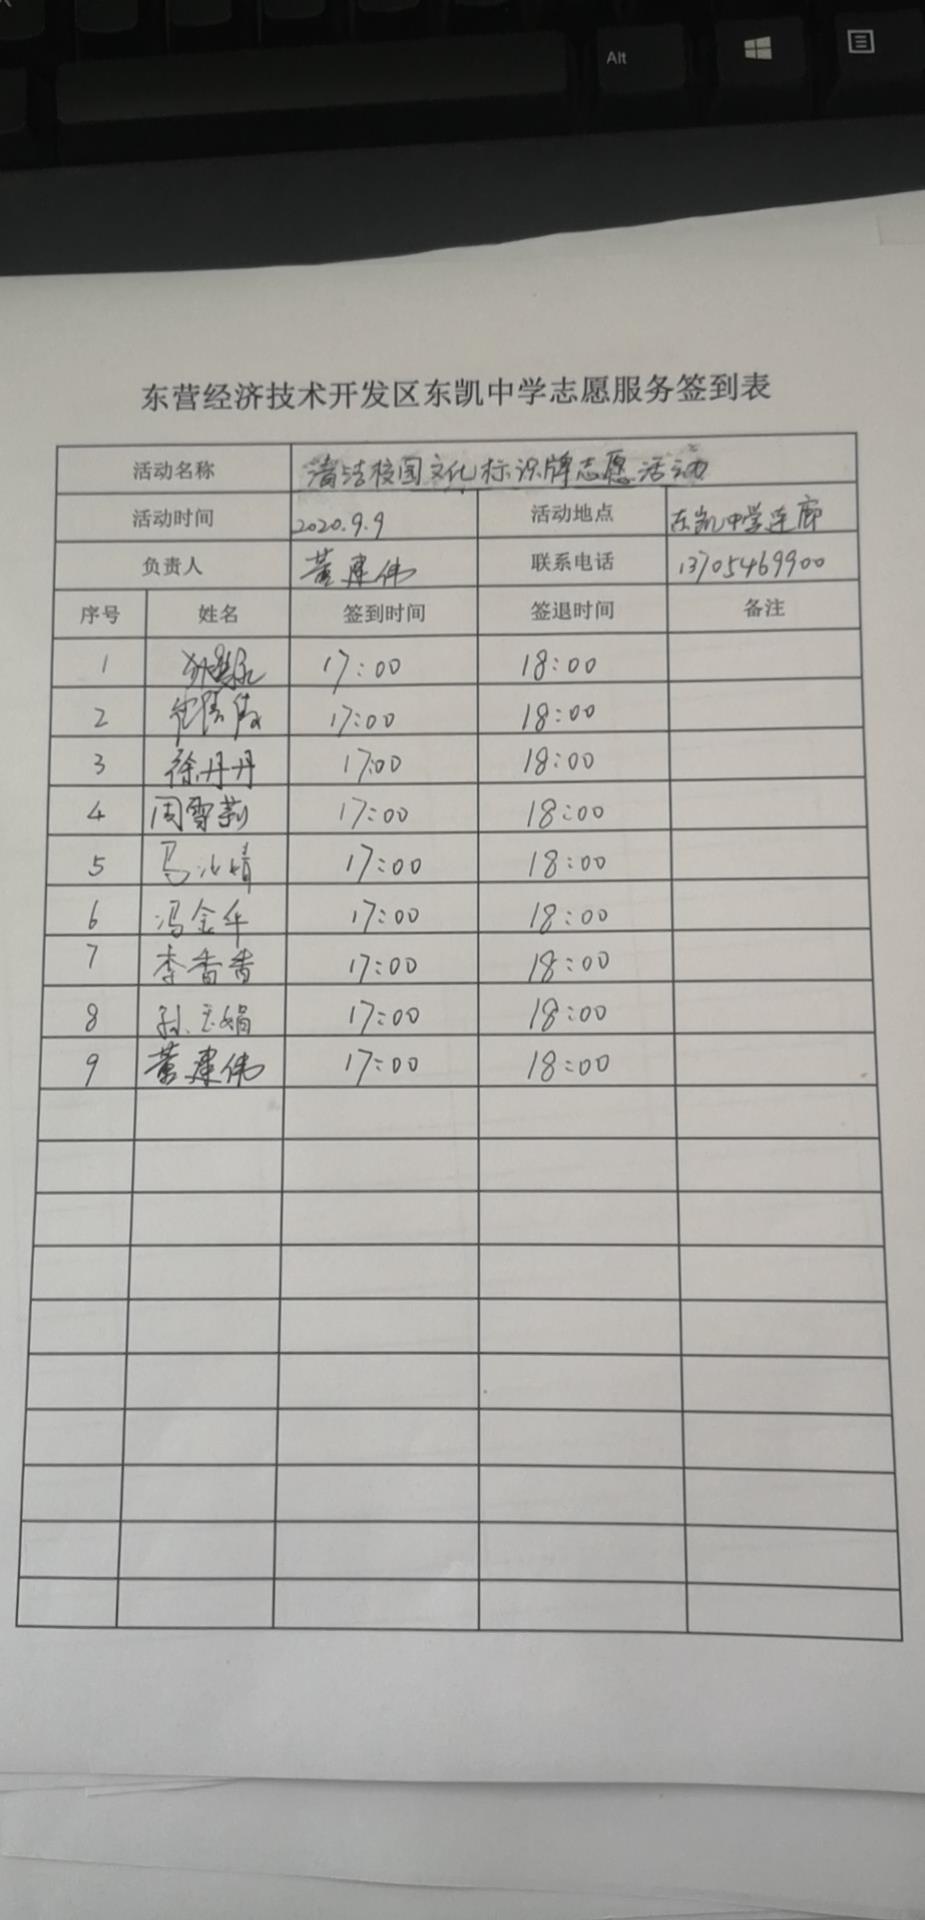 Alt
东营经济技术开发区东凯中学志愿服务签到表
活动名称 清洁校园文化标识牌志愿活动
活动时间 2020.9.9 活动地点 东凯中学连廊
负责人 董建伟 联系电话 13705469900
序号 姓名 签到时间 签退时间 备注
1 17:00 18:00
2 17:00 18:00
3 徐丹丹 17:00 18:00
4 周雪莉 17:00 18:00
5 马 婧 17:00 18:00
6 冯金华 17:00 18:00
7 李香香 17:00 18:00
8 孙玉娟 17:00 18:00
9 董建伟 17:00 18:00